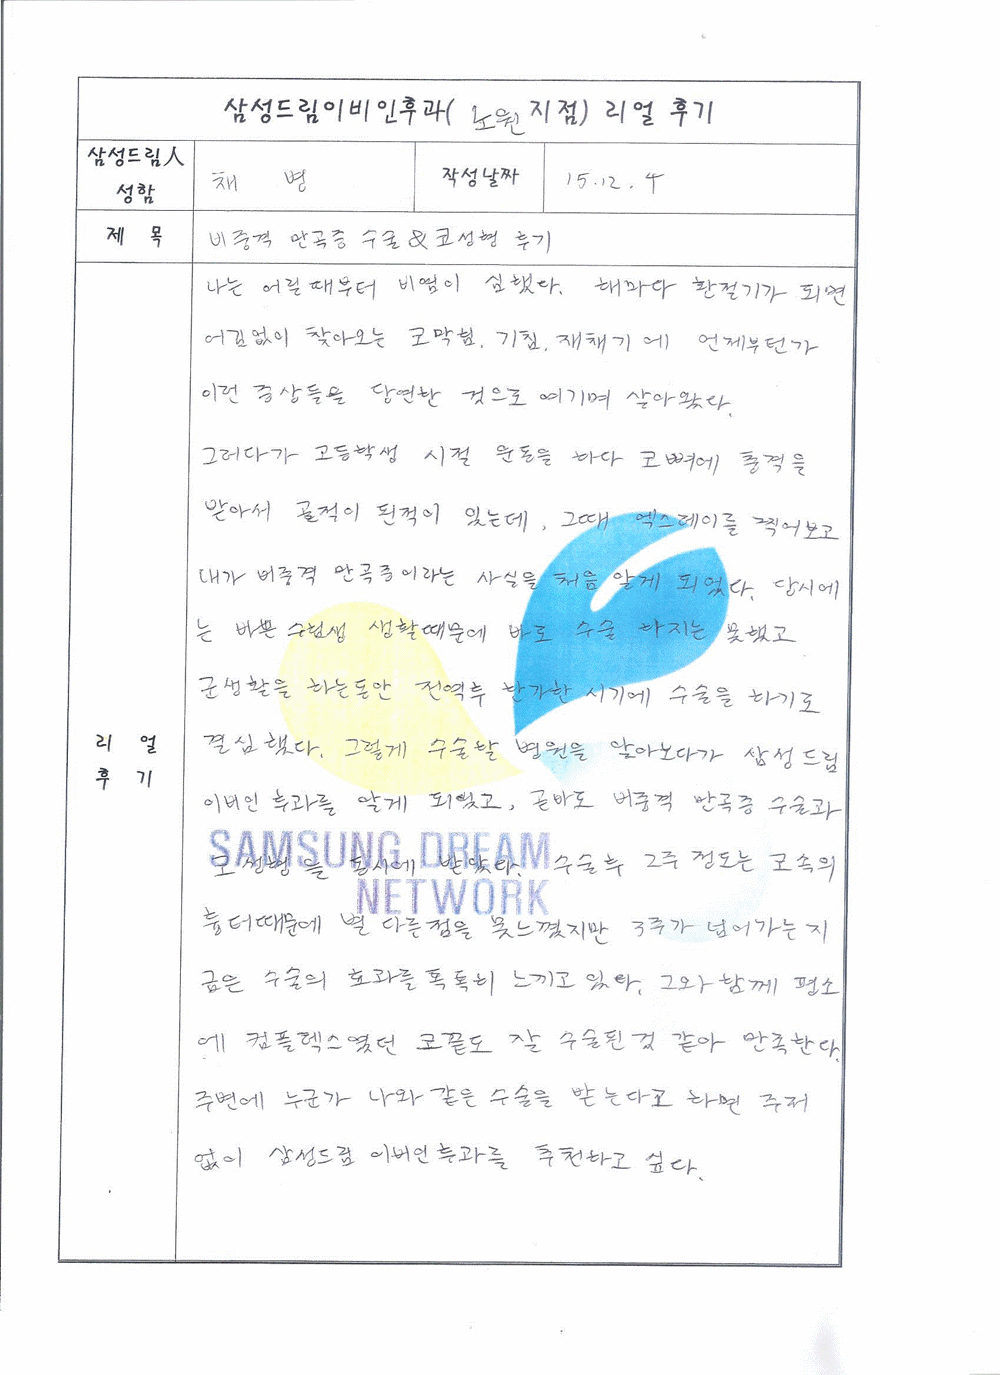 삼성드림이비인후과( 노원 지점) 리얼 후기
삼성드림人 성함
채 병
작성날짜
15.12.4
제 목
비중격 만곡증 수술 & 코성형 후기
리 얼
후 기
나는 어릴때부터 비염이 심했다. 해마다 환절기가 되면
어김없이 찾아오는 코막힘, 기침, 재채기에 언제부턴가
이런 증상들을 당연한 것으로 여기며 살아왔다.
그러다가 고등학생 시절 운동을 하다 코뼈에 충격을
받아서 골절이 된적이 있는데, 그때 엑스레이를 찍어보고
내가 비중격 만곡증이라는 사실을 처음 알게 되었다. 당시에
는 바쁜 수험생 생활때문에 바로 수술 하지는 못했고
군생활을 하는동안 전역후 한가한 시기에 수술을 하기로
결심했다. 그렇게 수술할 병원을 알아보다가 삼성드림
이비인후과를 알게 되었고, 곧바로 비중격 만곡증 수술과
코성형을 동시에 받았다. 수술후 2주 정도는 코속의
흉터때문에 별 다른점을 못느꼈지만 3주가 넘어가는 지
금은 수술의 효과를 톡톡히 느끼고 있다. 그와 함께 평소
에 컴플렉스였던 코끝도 잘 수술된것 같아 만족한다.
주변에 누군가 나와 같은 수술을 받는다고 하면 주저
없이 삼성드림 이비인후과를 추천하고 싶다.
SAMSUNG DREAM
NETWORK